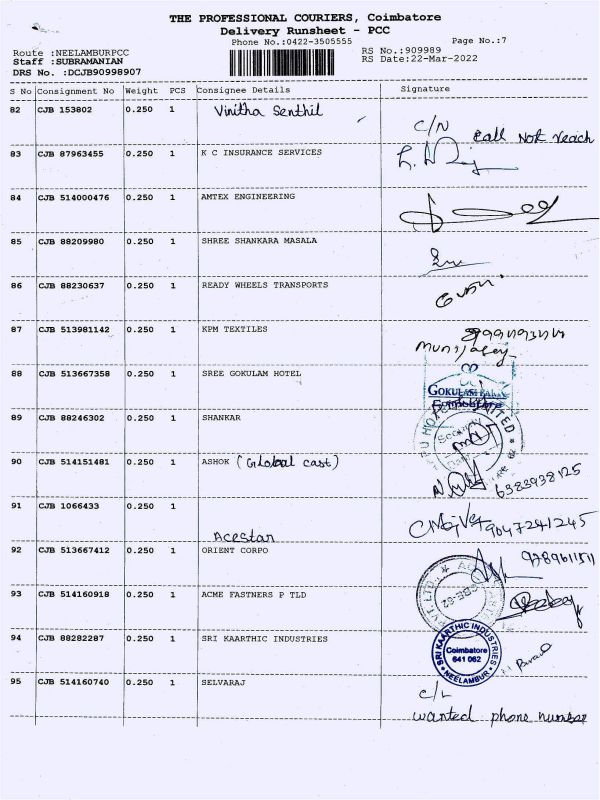 THE PROFESSIONAL COURIERS, Coimbatore
Delivery Runsheet - PCC
Phone No.:0422-3505555 Page No.:7
Route :NEELAMBURPCC RS No.:909989
Staff :SUBRAMANIAN RS Date:22-Mar-2022
DRS No. :DCJB90998907
S No Consignment No Weight PCS Consignee Details Signature
82 CJB 153802 0.250 1 Vinitha Senthil
C/N Call Not reach
83 CJB 87963455 0.250 1 K C INSURANCE SERVICES
84 CJB 514000476 0.250 1 AMTEX ENGINEERING
85 CJB 88209980 0.250 1 SHREE SHANKARA MASALA
86 CJB 88230637 0.250 1 READY WHEELS TRANSPORTS
87 CJB 513981142 0.250 1 KPM TEXTILES
88 CJB 513667358 0.250 1 SREE GOKULAM HOTEL
GOKULAM
89 CJB 88246302 0.250 1 SHANKAR
Security
90 CJB 514151481 0.250 1 ASHOK (Global cast) 6383938125
91 CJB 1066433 0.250 1 9047241245
Acestar
92 CJB 513667412 0.250 1 ORIENT CORPO 9789611511
93 CJB 514160918 0.250 1 ACME FASTNERS P TLD
94 CJB 88282287 0.250 1 SRI KAARTHIC INDUSTRIES
SRI KAARTHIC INDUSTRIES
Coimbatore
641 062
NEELAMBUR
95 CJB 514160740 0.250 1 SELVARAJ
C/L
wanted phone number